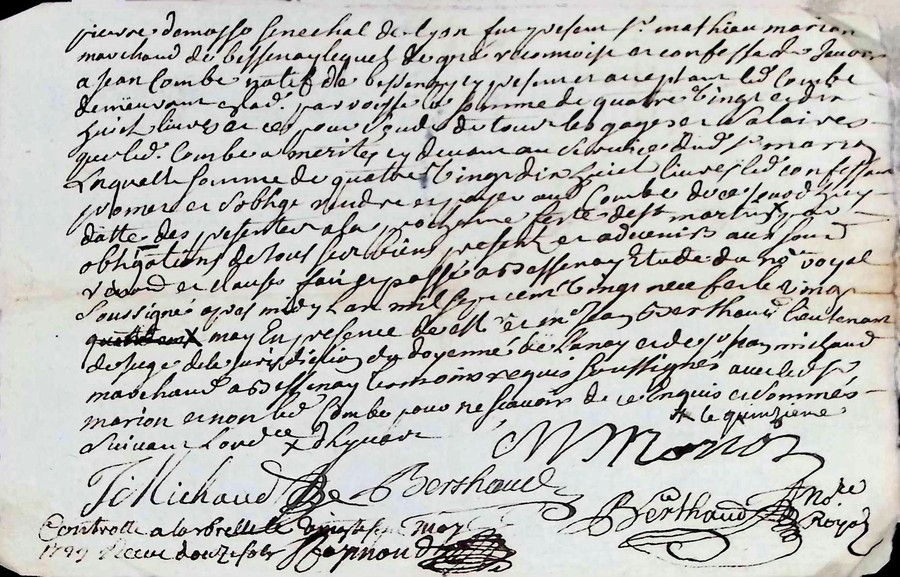 pierre demasso senechal de Lyon fut present Sr. mathieu marion
marchand de bessenay lequel de gré reconnoist et confesse devoir
a Jean Combe natif de bessenay cy present et acceptant led. Combe
demeurant aud. parroisse la somme de quatre vingt et dix
huict livres et ce pour Solde de tous les gages et Salaires
que led. Combe a merités cy devant au Service dud. Sr. marion
Laquelle Somme de quatre vingt dix huict livres led. confessant
promet et Soblige rendre et payer aud. Combe de ce jourdhuy
datte des presentes a la prochaine feste de St martin par
obligations de tous Ses biens presents et advenirs aux Cours
et clauses fait et passé a Bessenay Etude du nore royal
Soussigné apres midy Lan mil Sept cent vingt neuf et le vingt
may En presence de Me Jean Berthaud lieutenant
de juge de la jurisdiction du doyenné de Savay et de Jean michaud
marchand a Bessenay temoins requis Soussignés avec led. Sr
marion et non led. Combe pour ne Scavoir de ce Enquis et Sommés
Suivant Lordce x dhyvare x le quinzieme
M Marion
J. Michaud Berthaud
Berthaud Nore Royal
Controllé a la brelle le may
1729 Receu douze sols